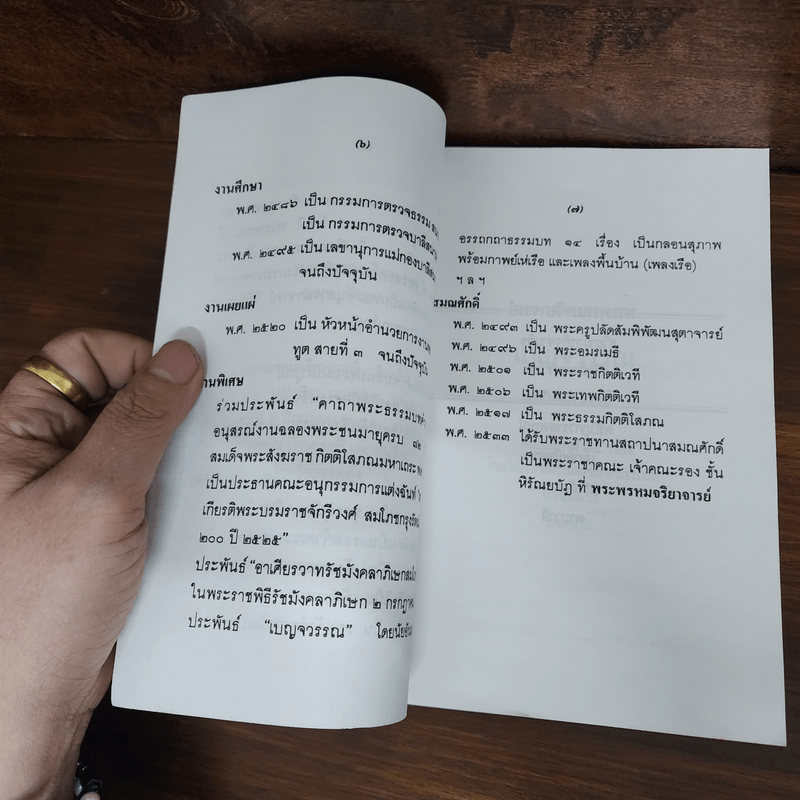 (๖)
งานศึกษา
พ.ศ. ๒๔๘๖ เป็น กรรมการตรวจธรรม
เป็น กรรมการตรวจบาลี
พ.ศ. ๒๔๙๕ เป็น เลขานุการแม่กองบาลี
จนถึงปัจจุบัน
งานเผยแผ่
พ.ศ. ๒๕๒๐ เป็น หัวหน้าอำนวยการงาน
ทูต สายที่ ๓ จนถึงปัจจุบัน
านพิเศษ
ร่วมประพันธ์ “คาถาพระธรรมบท
อนุสรณ์งานฉลองพระชนมายุครบ ๗๒
สมเด็จพระสังฆราช กิตติโสภณมหาเถระ
เป็นประธานคณะอนุกรรมการแต่งฉันท์
เกียรติพระบรมราชจักรีวงศ์ สมโภชกรุงรัตน
๒๐๐ ปี ๒๕๒๕”
ประพันธ์ “อาเศียรวาทรัชมังคลาภิเษก
ในพระราชพิธีรัชมังคลาภิเษก ๒ กรกฎาค
ประพันธ์ “เบญจวรรณ” โดยนัย
(๗)
อรรถกถาธรรมบท ๑๔ เรื่อง เป็นกลอนสุภาพ
พร้อมกาพย์เห่เรือ และเพลงพื้นบ้าน (เพลงเรือ)
ฯ ล ฯ
สมณศักดิ์
พ.ศ. ๒๔๙๓ เป็น พระครูปลัดสัมพิพัฒนสุตาจารย์
พ.ศ. ๒๔๙๖ เป็น พระอมรเมธี
พ.ศ. ๒๕๐๑ เป็น พระราชกิตติเวที
พ.ศ. ๒๕๐๖ เป็น พระเทพกิตติเวที
พ.ศ. ๒๕๑๗ เป็น พระธรรมกิตติโสภณ
พ.ศ. ๒๕๓๓ ได้รับพระราชทานสถาปนาสมณศักดิ์
เป็นพระราชาคณะ เจ้าคณะรอง ชั้น
หิรัณยบัฏ ที่ พระพรหมจริยาจารย์